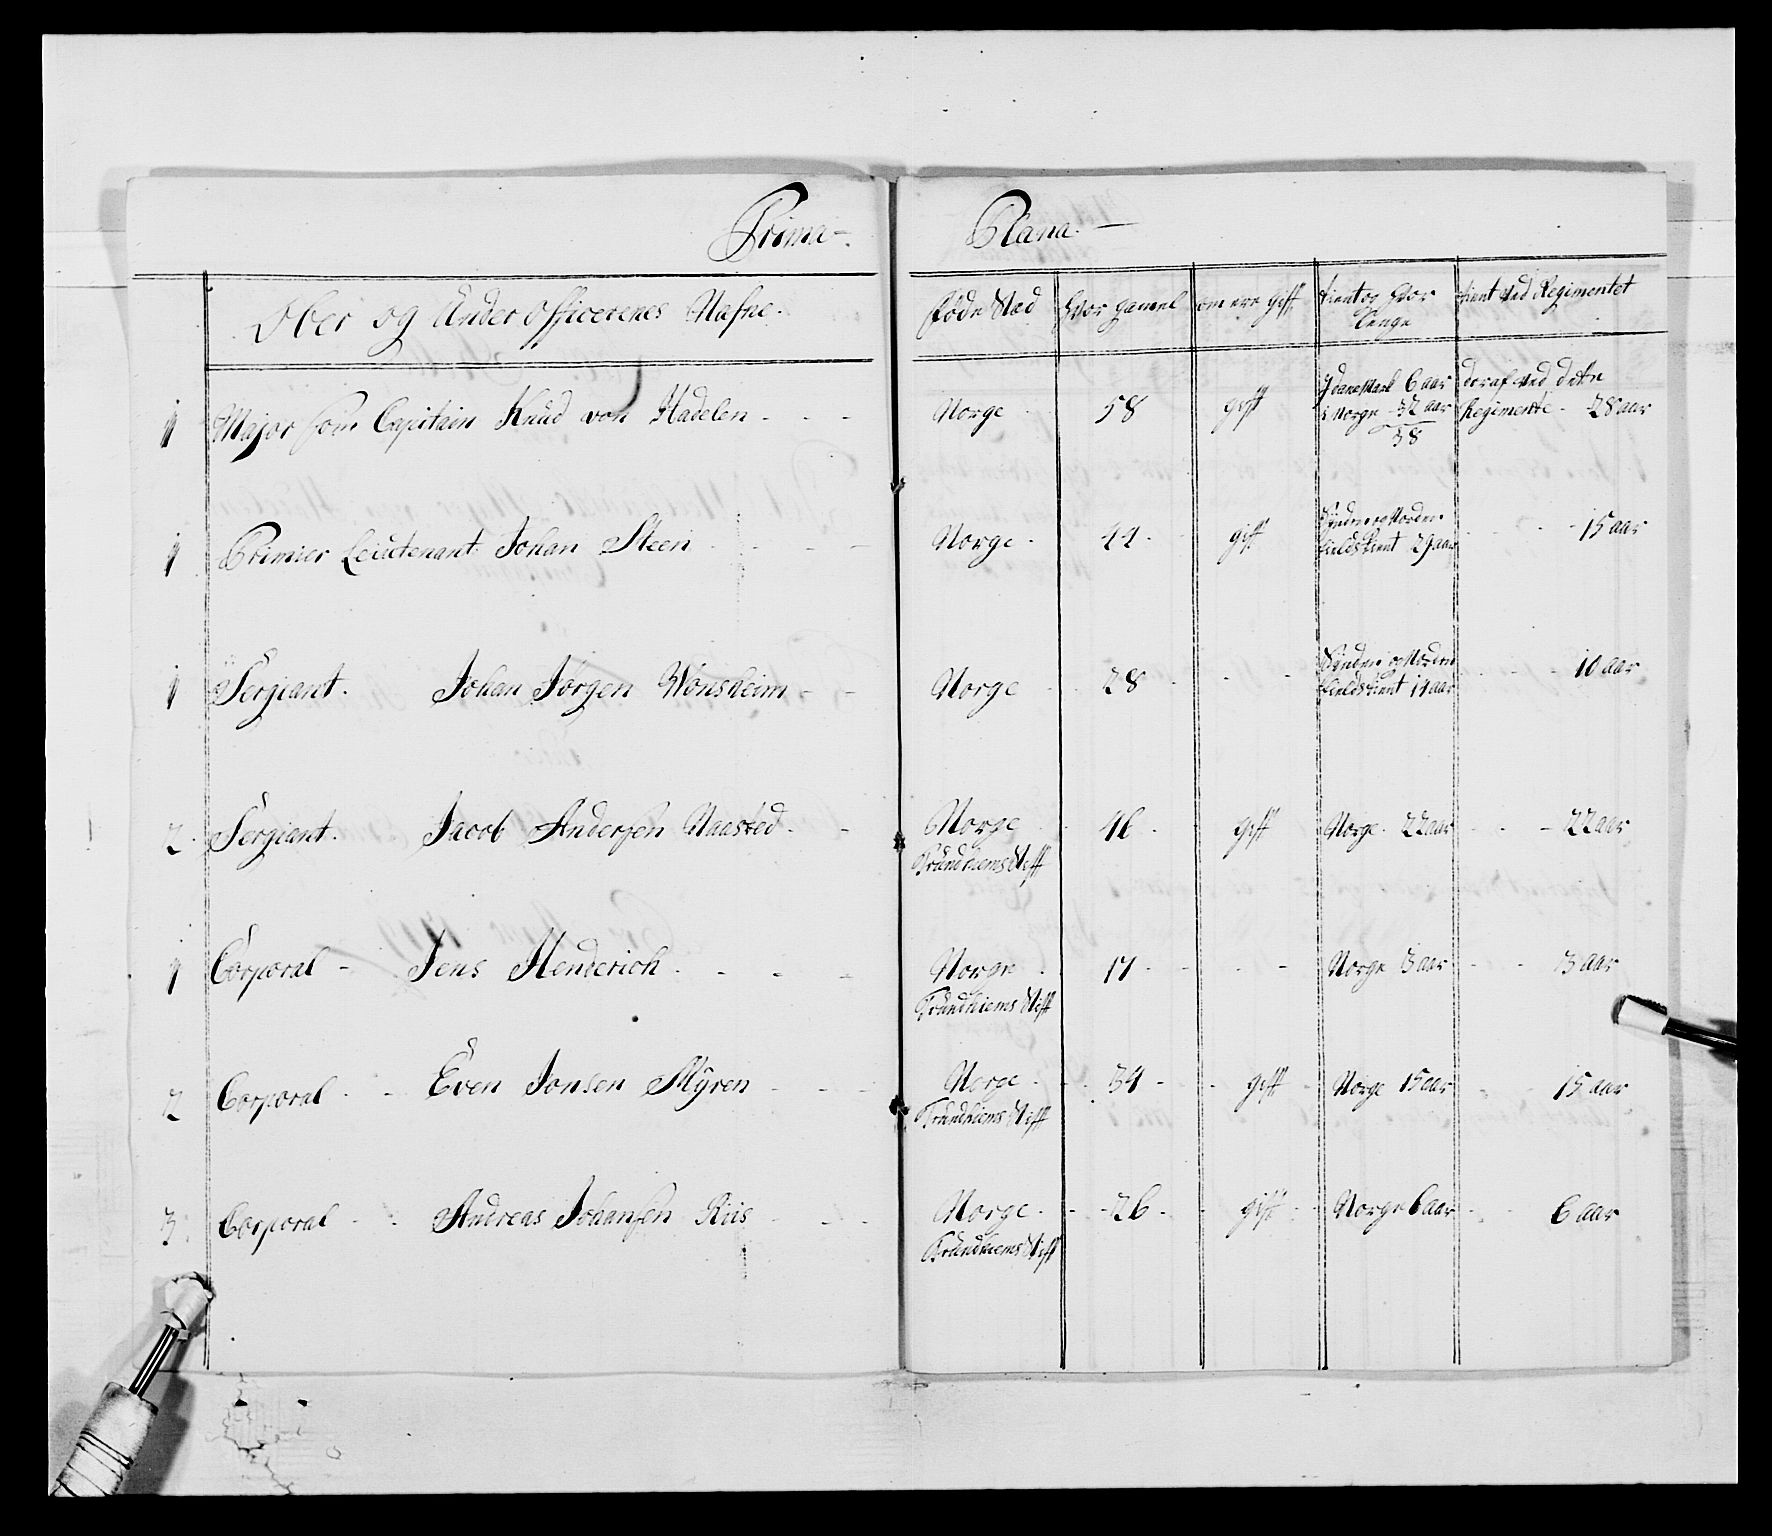 Prima Plana.
Ober og Under Officerenes Nafne. Føde Stæd Hvor gamel om ere gift tient og hvor lenge tient ved Regimentet
1 Major som Capitain Knud von Hadelen - - Norge 58 gift J Danemark 6 aar i Norge - 32 aar 38 deraf ved dette Regimente - 28 aar
1 Primier Leiutenant Johan Steen - - Norge - 44 gift Synden og Norden fields tient 29 aar - - 15 aar
1 Sergiant. Johan Jørgen Wonsheim - - Norge - 28 - - Synden og Norden fields tient 14 aar - - 10 aar
2 Sergiant. Jacob Andersen Naasted - - Norge Trundhiems Stift 46 - gift Norge 22 aar - - 22 aar
1 Corporal - Jens Henderich - - - Norge Trundhiems Stift 17 - - - Norge 3 aar - - 3 aar
2 Corporal - - Even Jonsen Myren - - - Norge Trundhiems Stift 34 - gift Norge 15 aar - - 15 aar
3 Corporal - - Andreas Johansen Riis - - - Norge Trundhiems Stift 26 - gift Norge 6 aar - - 6 aar